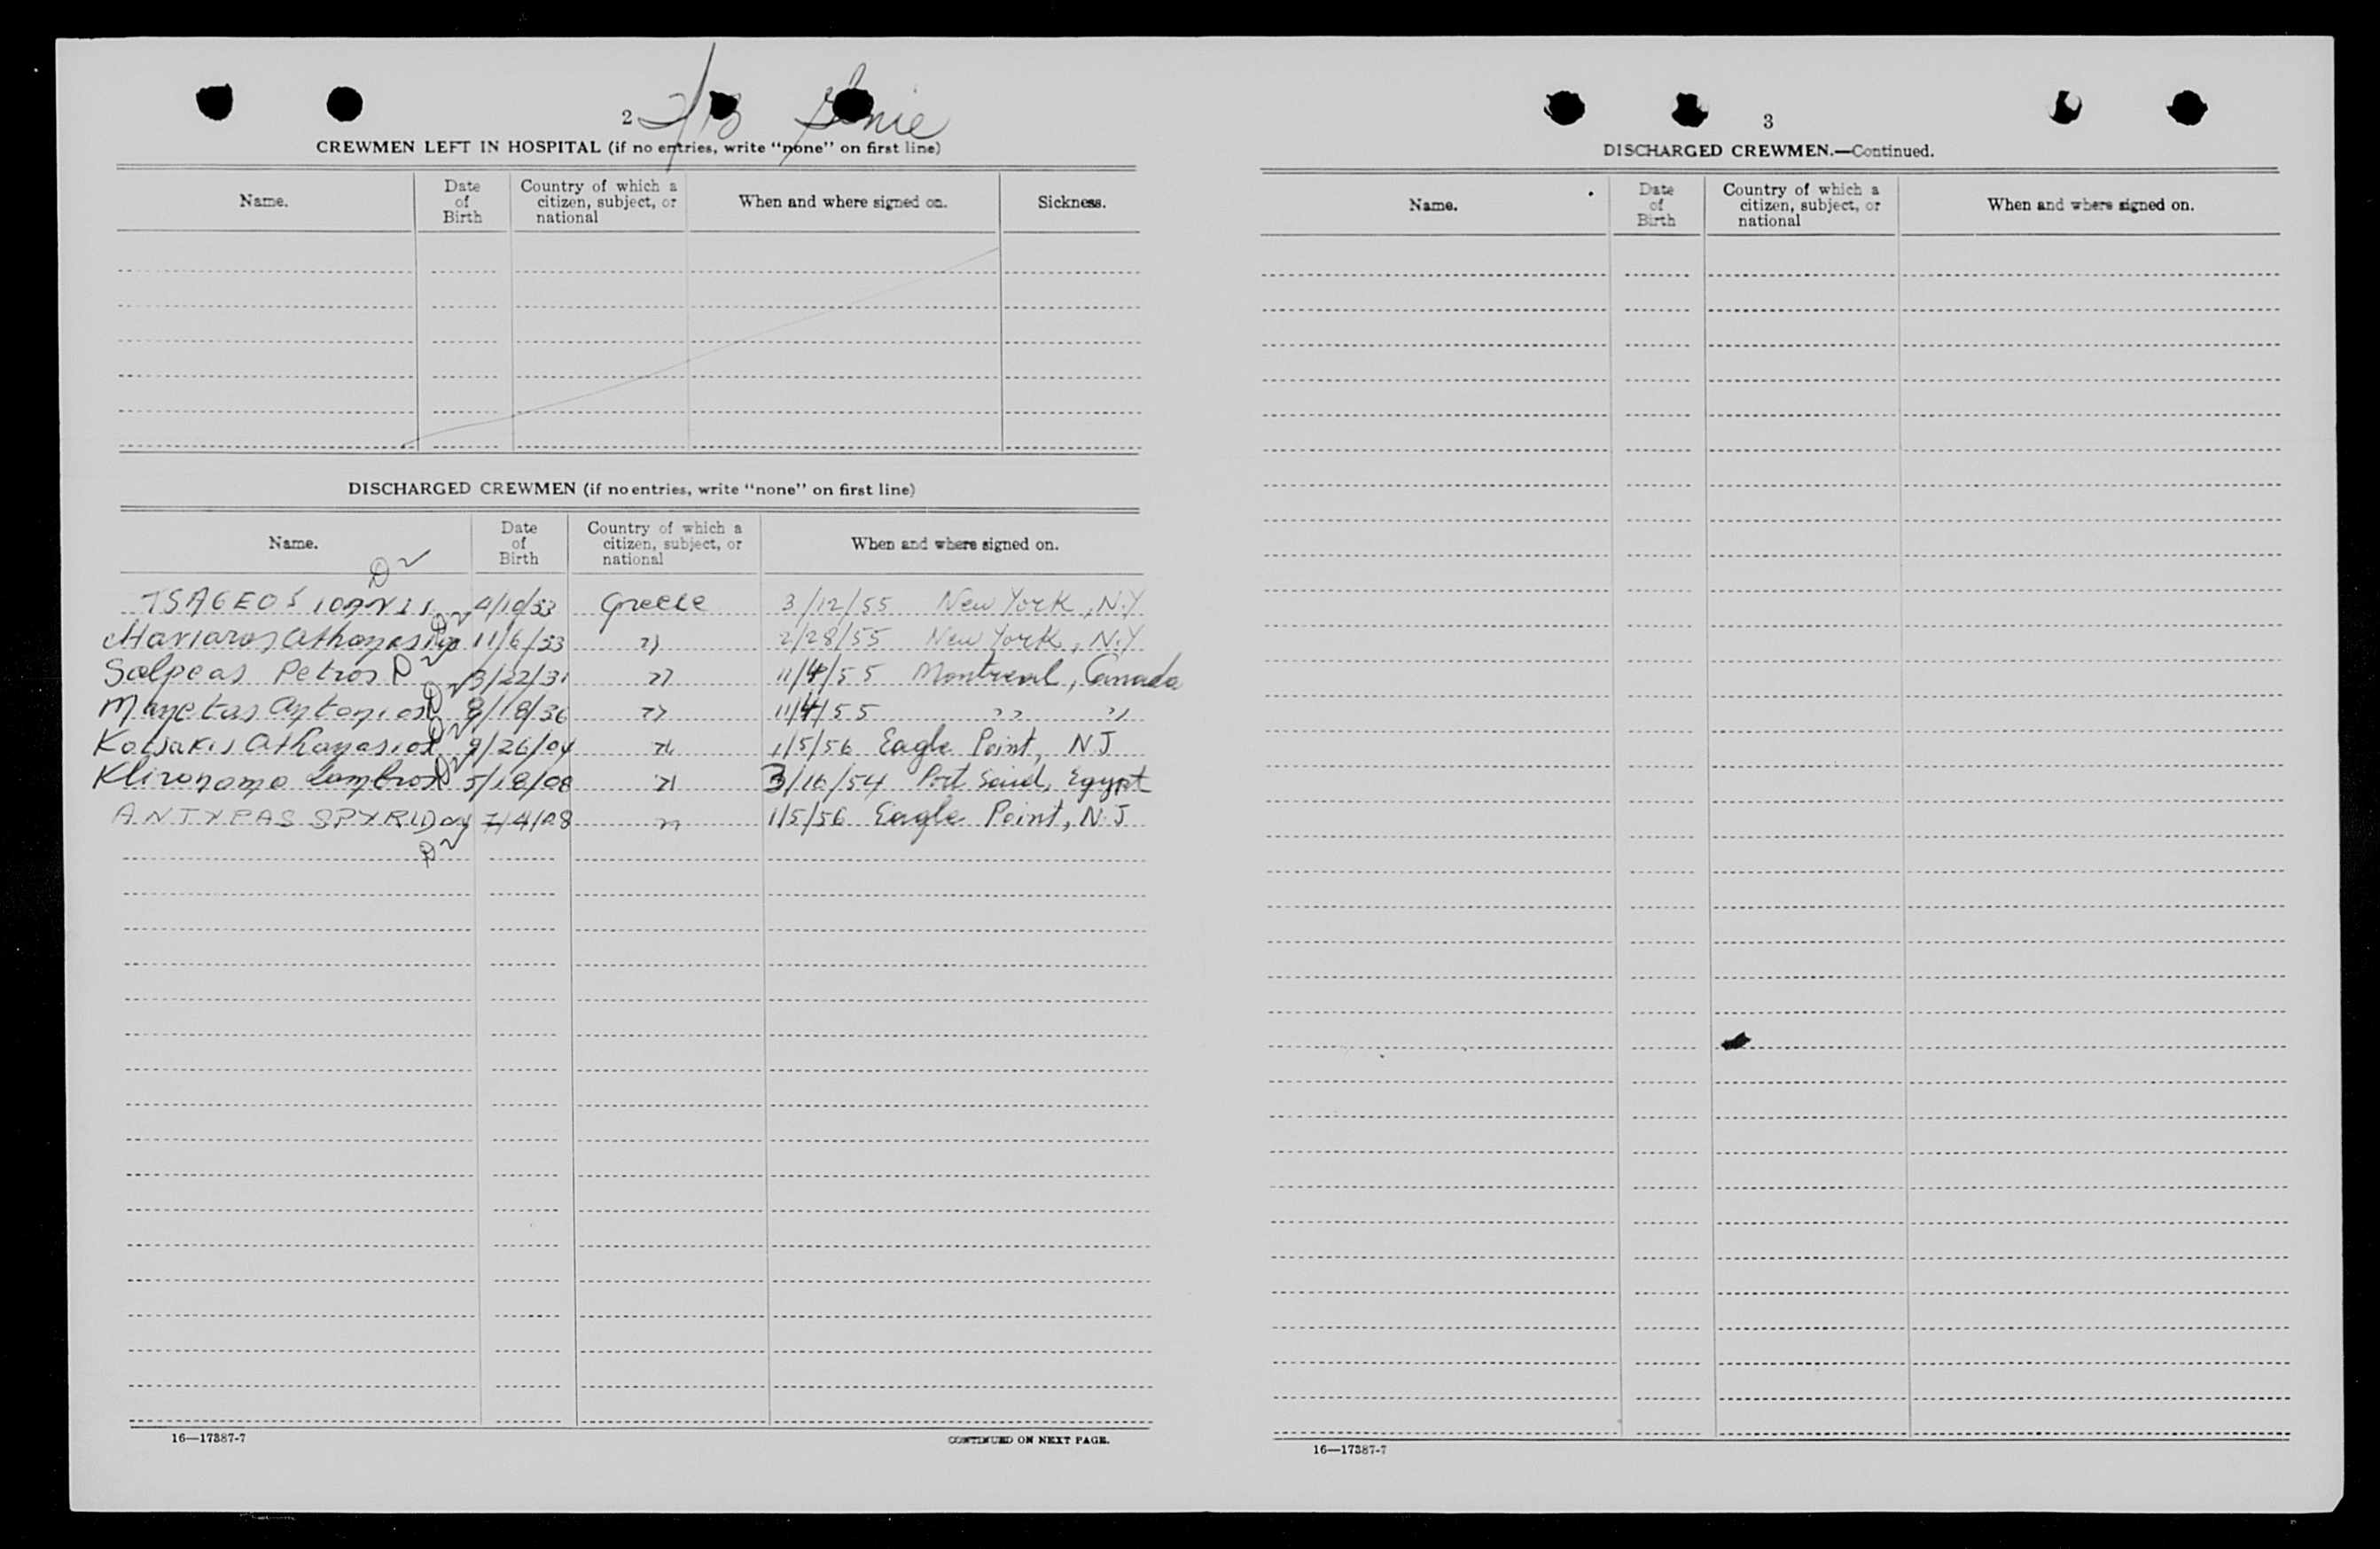 2
CREWMEN LEFT IN HOSPITAL (if no entries, write "none" on first line)
Name. Date of Birth Country of which a citizen, subject, or national When and where signed on. Sickness.
DISCHARGED CREWMEN (if no entries, write "none" on first line)
Name. Date of Birth Country of which a citizen, subject, or national When and where signed on.
TSAGEOS IOANIS 4/10/33 Greece 3/12/55 New York, N.Y
Athanasios 11/6/33 " 2/28/55 New York, N.Y
Salpeas Petros 3/22/31 " 11/4/55 Montreal, Canada
Manetas Antonios 8/18/36 " 11/4/55 " "
Kotsakis Athanasios 9/26/04 " 1/5/56 Eagle Point, NJ
Klironomo Lambros 5/18/08 " 3/16/54 Port Said, Egypt
ANTYPAS SPYRIDON 7/4/08 " 1/5/56 Eagle Point, N.J
16—17387-7
CONTINUED ON NEXT PAGE.
3
DISCHARGED CREWMEN.—Continued.
Name. Date of Birth Country of which a citizen, subject, or national When and where signed on.
16—17387-7